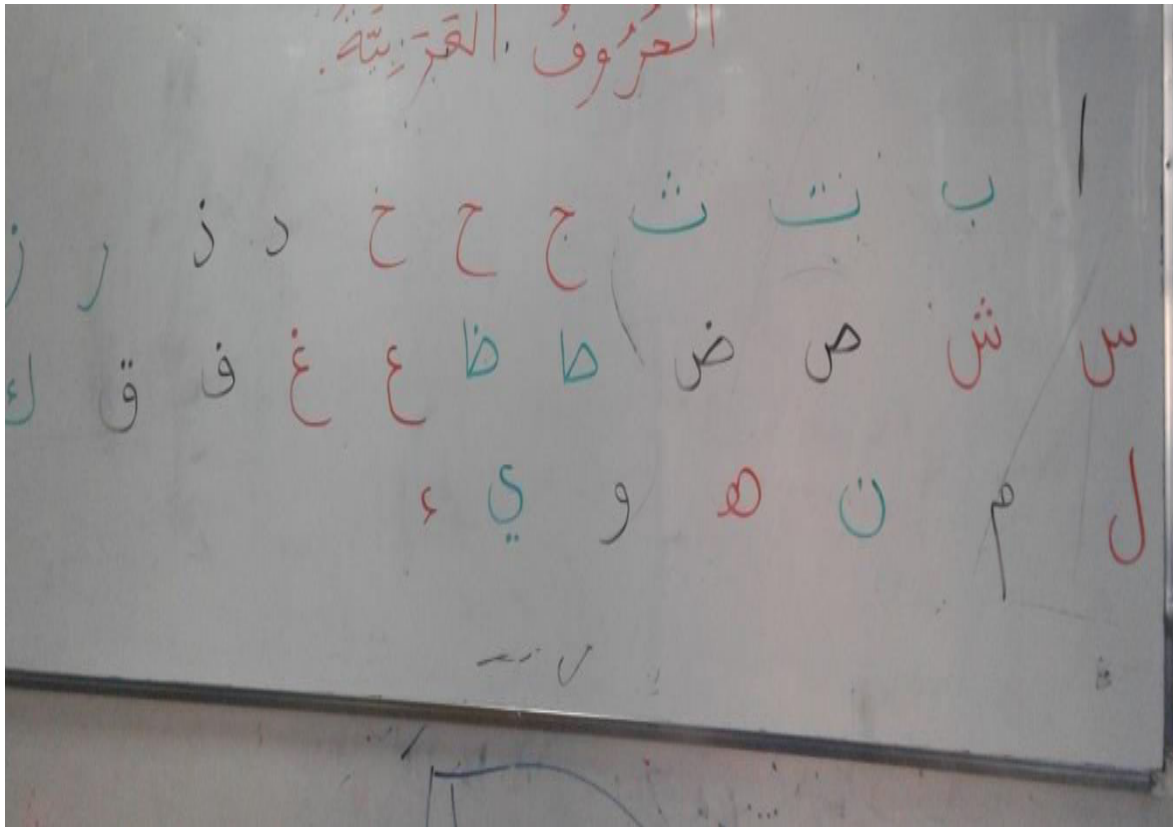 الحُرُوفُ العَرَبِيَّةُ.
ا ب ت ث ج ح خ د ذ ر ز
س ش ص ض ط ظ ع غ ف ق ك
ل م ن ه و ي ء